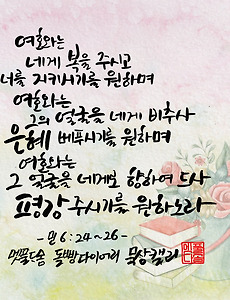 여호와는
네게 복을 주시고
너를 지키시기를 원하며
여호와는
그의 얼굴을 네게 비추사
은혜 베푸시기를 원하며
여호와는
그 얼굴을 네게로 향하여 드사
평강 주시기를 원하노라
-민 6:24~26-
돌빵다이어리 묵상캘리